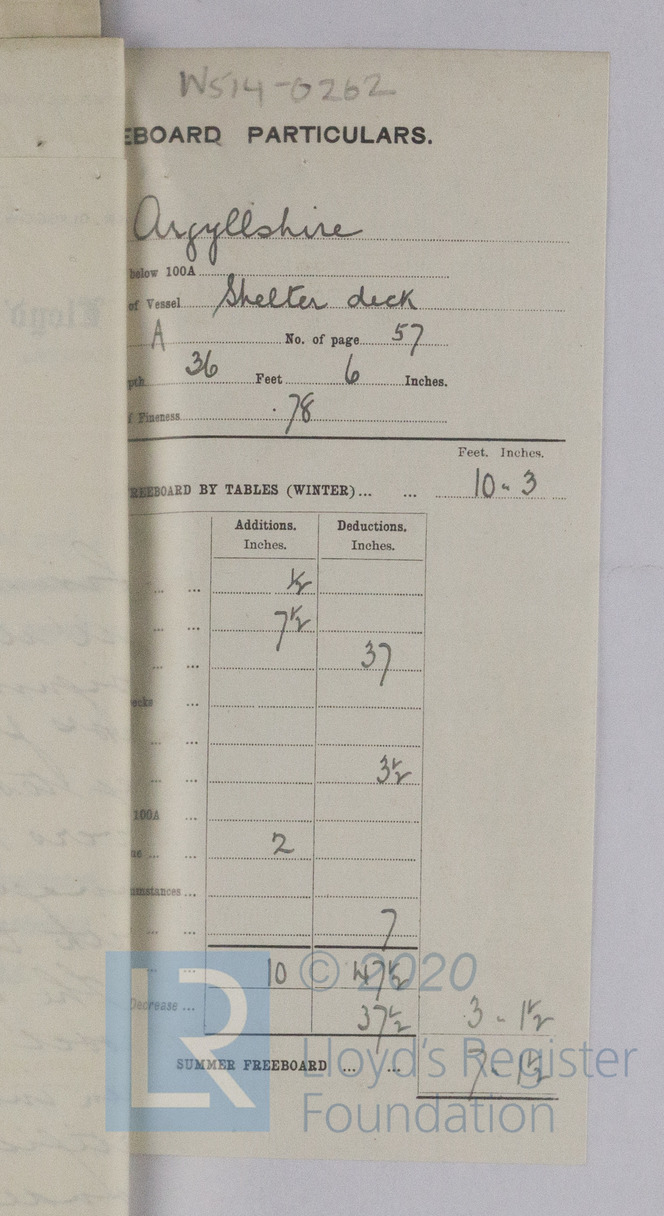 W514-0262
EBOARD PARTICULARS.
Argyllshire
below 100A
of Vessel Shelter deck
A No. of page 57
pth 36 Feet 6 Inches.
f Fineness .78
Feet. Inches.
REEBOARD BY TABLES (WINTER)... ... 10 - 3
Additions. Inches. Deductions. Inches.
... ... ½
... ... 7½
... ... 37
ecks ...
... ...
... ... 3½
100A
ne ... ... 2
umstances ...
... ... 7
... ... 10 47½
Decrease ... 37½ 3 - 1½
SUMMER FREEBOARD ... ... 7 - 1½
© 2020
LR
Lloyd's Register
Foundation